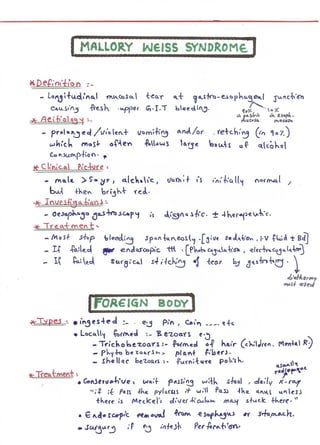 MALLORY WEISS SYNDROME
* Definition :-
- Longitudinal mucosal tear at gastro-esophageal junction
causing fresh upper G.I.T bleeding.
80% in gastric mucosa
20% in esoph. mucosa
* Aeitiology :-
- prolonged/violent vomiting and/or retching (in 90%)
which most often follows large bouts of alcohol
consumption.
* Clinical Picture :
- male >50yr, alcholic, vomit is initially normal,
but then bright red.
* Investigations :
- Oesophagogastroscopy is diagnostic. ± therapeutic.
* Treatment :-
- Most stop bleeding spontaneously. [give sedation, I.V fluid ± Bd]
- If failed endoscopic ttt. [Photocoagulation, electrocagulation]
- If failed surgical stitching of tear by gastrotomy.
diathermy
most used
FOREIGN BODY
* Types : • ingested :- eg Pin, Coin .... etc
• Locally formed :- Bezoars e.g
- Trichobezoars :- formed of hair (children, Mental R.)
- Phytobezoars :- plant fibers.
- Shellac bezoars :- furniture polish.
usually
radiopaque
* Treatment :
• Conservative : wait passing with stool, daily X-ray
"if it Pass the pylorus it will Pass the anus unless
there is Meckel's diverticulum may stuck there."
• Endoscopic removal from esophagus or stomach.
• Surgury if eg intest Perforation.